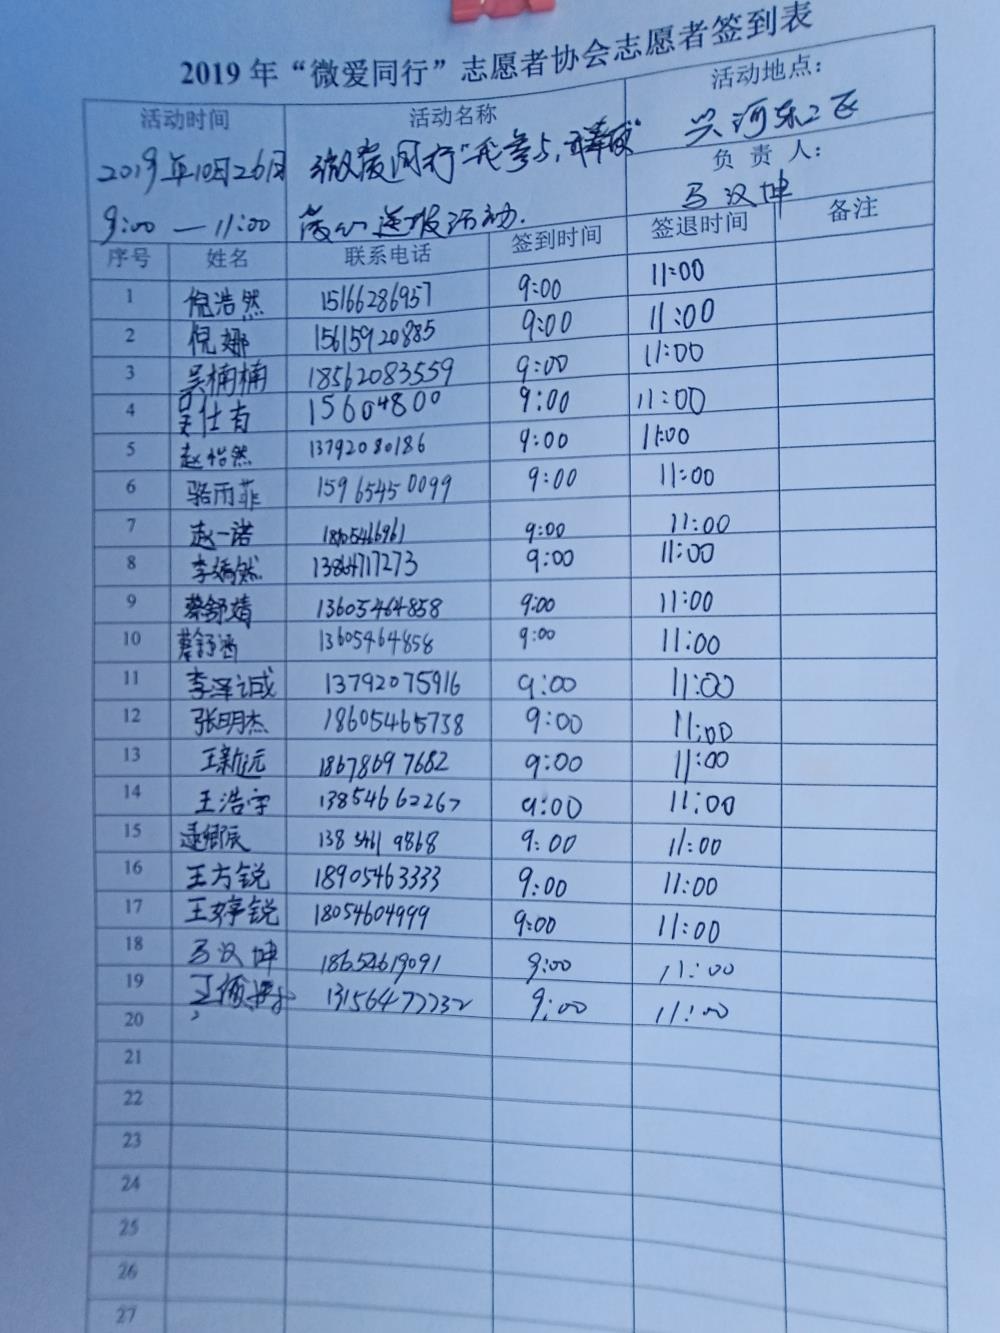 2019年“微爱同行”志愿者协会志愿者签到表
活动时间 活动名称 活动地点：
2019年10月26日 微爱同行“我参与，我奉献” 兴河东二区
9:00 — 11:00 活动. 负 责 人： 马汉坤
序号 姓名 联系电话 签到时间 签退时间 备注
1 倪浩然 15166286957 9:00 11:00
2 倪娜 15615920885 9:00 11:00
3 吴楠楠 18562083559 9:00 11:00
4 吴仕有 15604800 9:00 11:00
5 赵怡然 13792080186 9:00 11:00
6 骆雨菲 15965450099 9:00 11:00
7 赵一诺 9:00 11:00
8 李嫣然 13864717273 9:00 11:00
9 蔡舒婧 13605464858 9:00 11:00
10 蔡舒涵 13605464858 9:00 11:00
11 李泽诚 13792075916 9:00 11:00
12 张明杰 18605465738 9:00 11:00
13 王新远 18678697682 9:00 11:00
14 王浩宇 13854662267 9:00 11:00
15 逯卿辰 138 5461 9868 9:00 11:00
16 王方锐 18905463333 9:00 11:00
17 王婷锐 18054604999 9:00 11:00
18 马汉坤 18654619091 9:00 11:00
19 13156477232 9:00 11:00
20
21
22
23
24
25
26
27